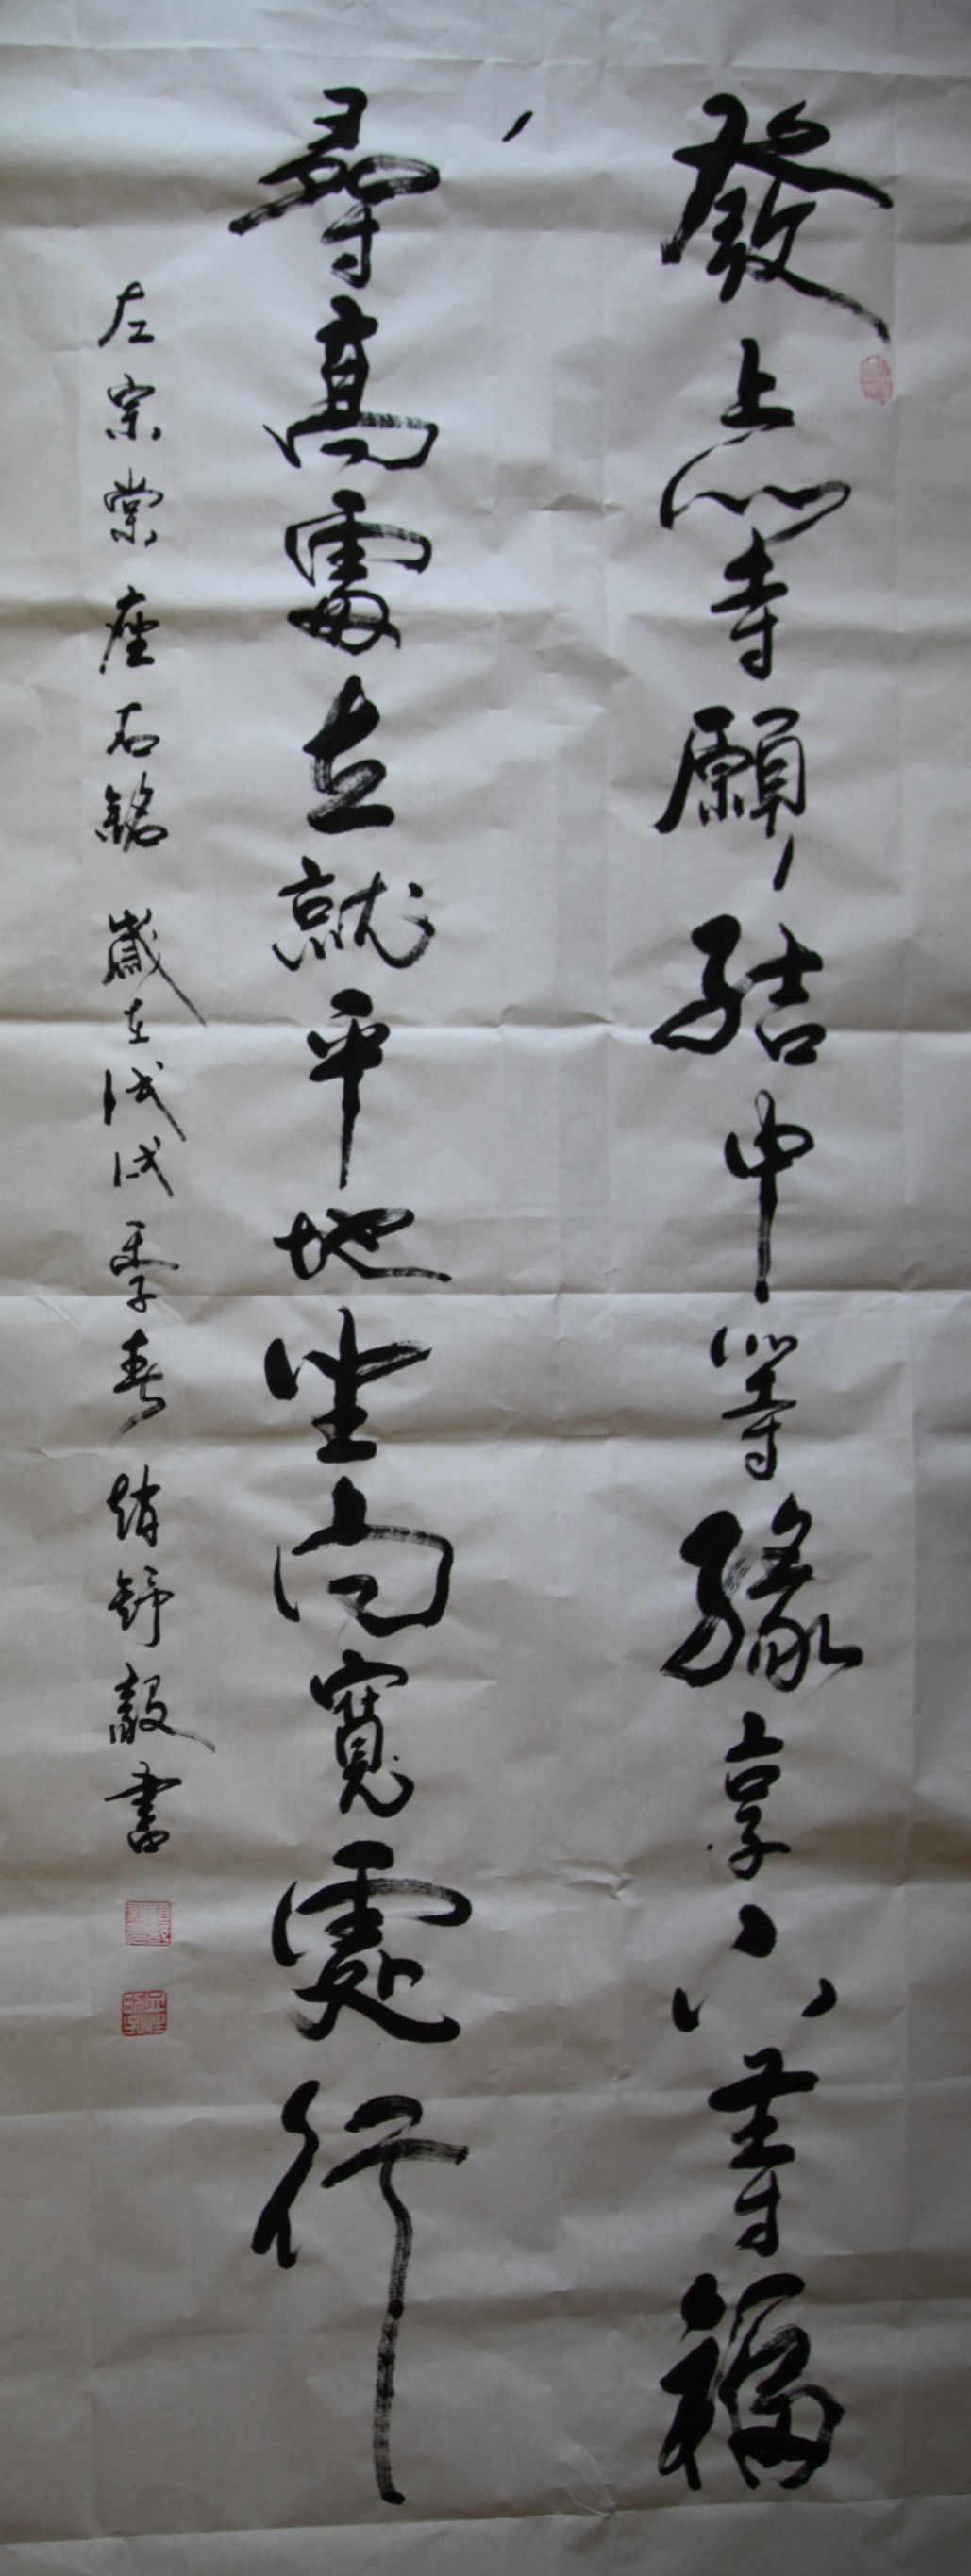 發上等願結中等緣享下等福
尋高處立就平地坐向寬處行
左宗棠座右銘 歲在戊戌季春 趙舒毅書